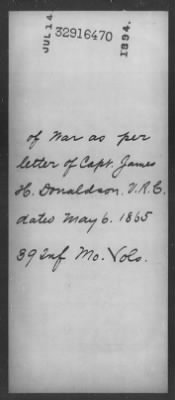 JUL 14 32916470 1894.
of War as per
letter of Capt. James
H. Donaldson. V.R.C.
dates May 6. 1865
39 Inf Mo. Vols.